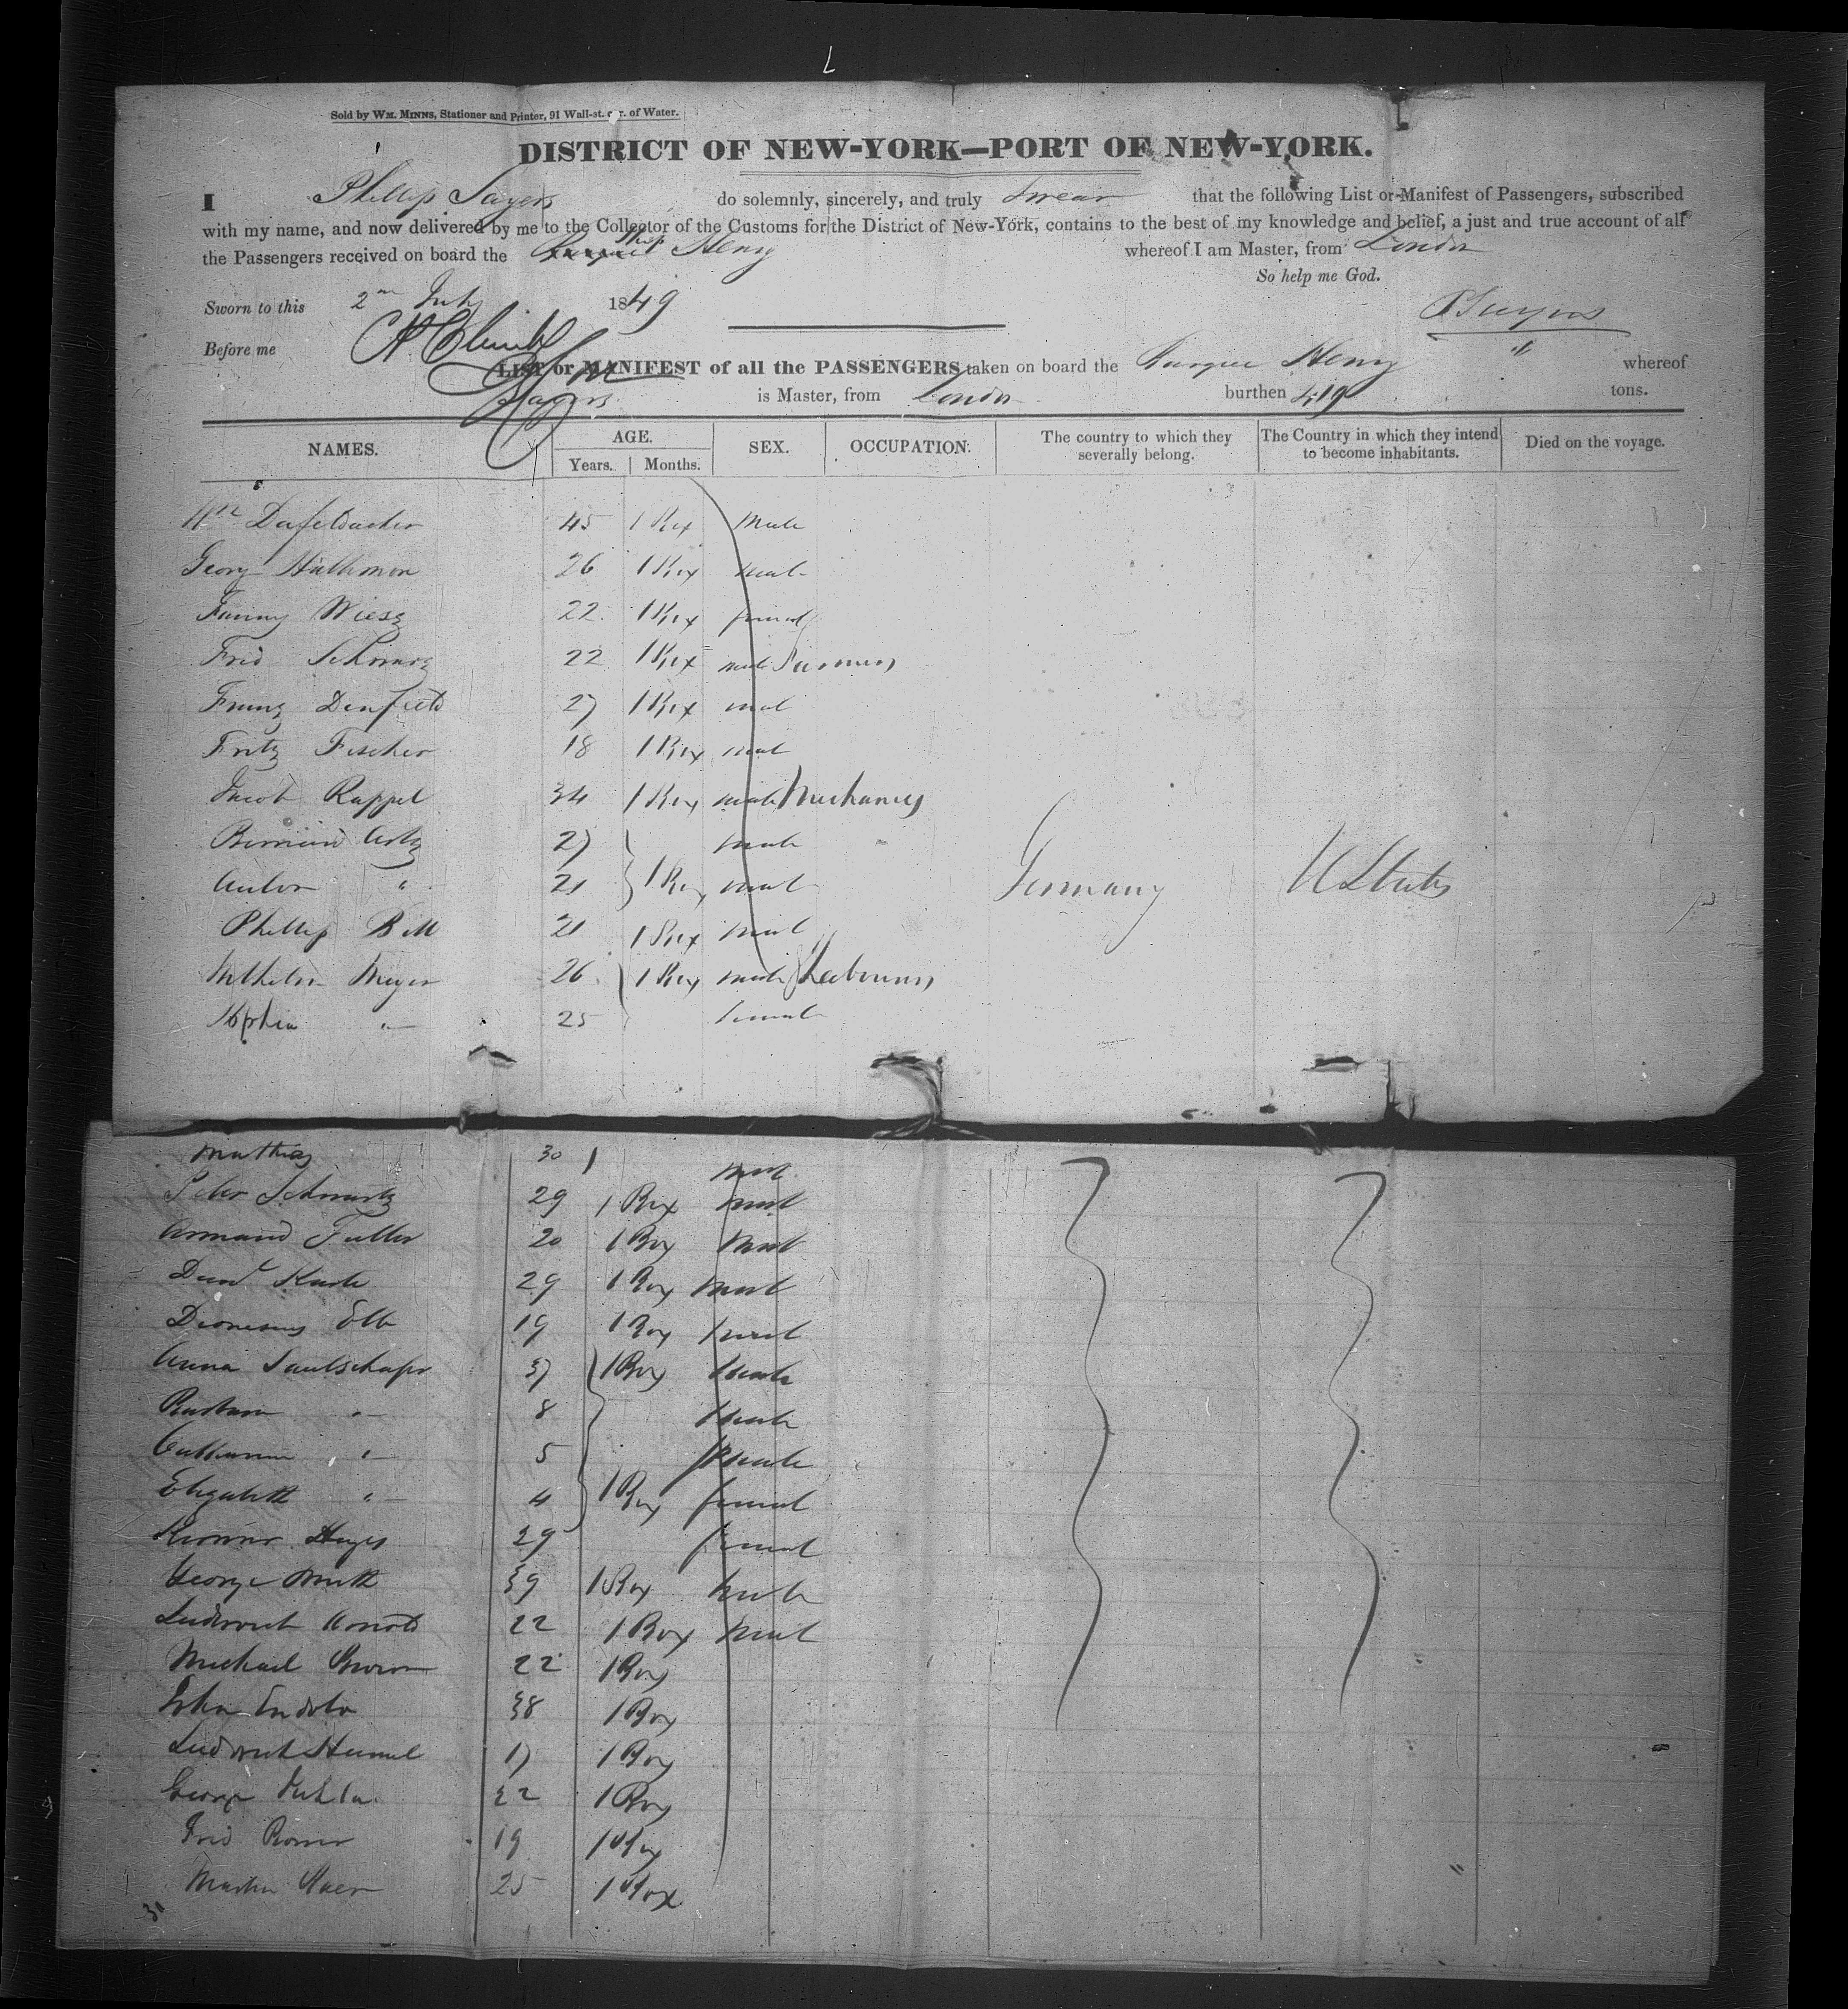 Sold by WM. MINNS, Stationer and Printer, 91 Wall-st. c r. of Water.
DISTRICT OF NEW-YORK—PORT OF NEW-YORK.
I Phillip Sayers do solemnly, sincerely, and truly Swear that the following List or Manifest of Passengers, subscribed
with my name, and now delivered by me to the Collector of the Customs for the District of New-York, contains to the best of my knowledge and belief, a just and true account of all
the Passengers received on board the Ship Henry whereof I am Master, from London
So help me God.
Sworn to this 2nd July 1849
P Sayers
Before me
LIST or MANIFEST of all the PASSENGERS taken on board the Barque Henry whereof
Sayers is Master, from London burthen 419 tons.
NAMES. AGE. SEX. OCCUPATION. The country to which they severally belong. The Country in which they intend to become inhabitants. Died on the voyage.
Years. Months.
45 1 Box Male
Georg 26 1 Box male
Fanny Wiesz 22 1 Box female
Fred Schwarz 22 1 Box male Farmers
Franz 27 1 Box male
Fritz Fischer 18 1 Box male
Jacob Rappel 34 1 Box male Mechanics
27 male
Anton " 21 1 Box male Germany U States
Phillip Bill 21 1 Box male
Wilhelm Meyer 26 1 Box male Labourers
Sophia " 25 female
Mathias 30 male
Peter Schwartz 29 1 Box male
Armand Fuller 20 1 Box male
29 1 Box male
Dionesius Elb 19 1 Box male
Anna 37 1 Box female
Barbara " 8 female
Catharine " 5 female
Elizabeth " 4 1 Box female
29 female
George 39 1 Box male
Ludwich Arnold 22 1 Box male
Michael Brown 22 1 Box
John 38 1 Box
Ludwich Hummel 17 1 Box
George 22 1 Box
Fred Romer 19 1 Box
Martin 25 1 Box